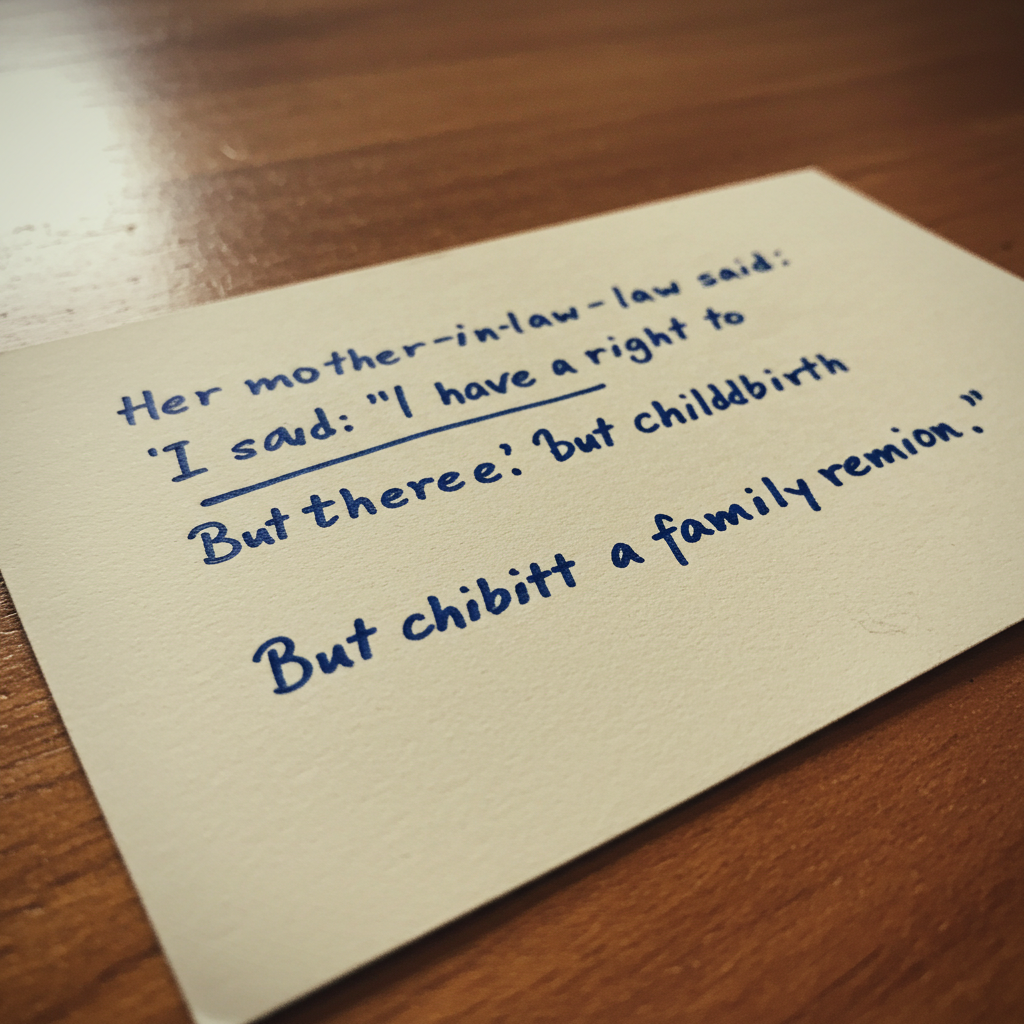 Her mother-in-law-law said:
'I said: "I have a right to
But theree'. But childdbirth
But chibitt a family remion."